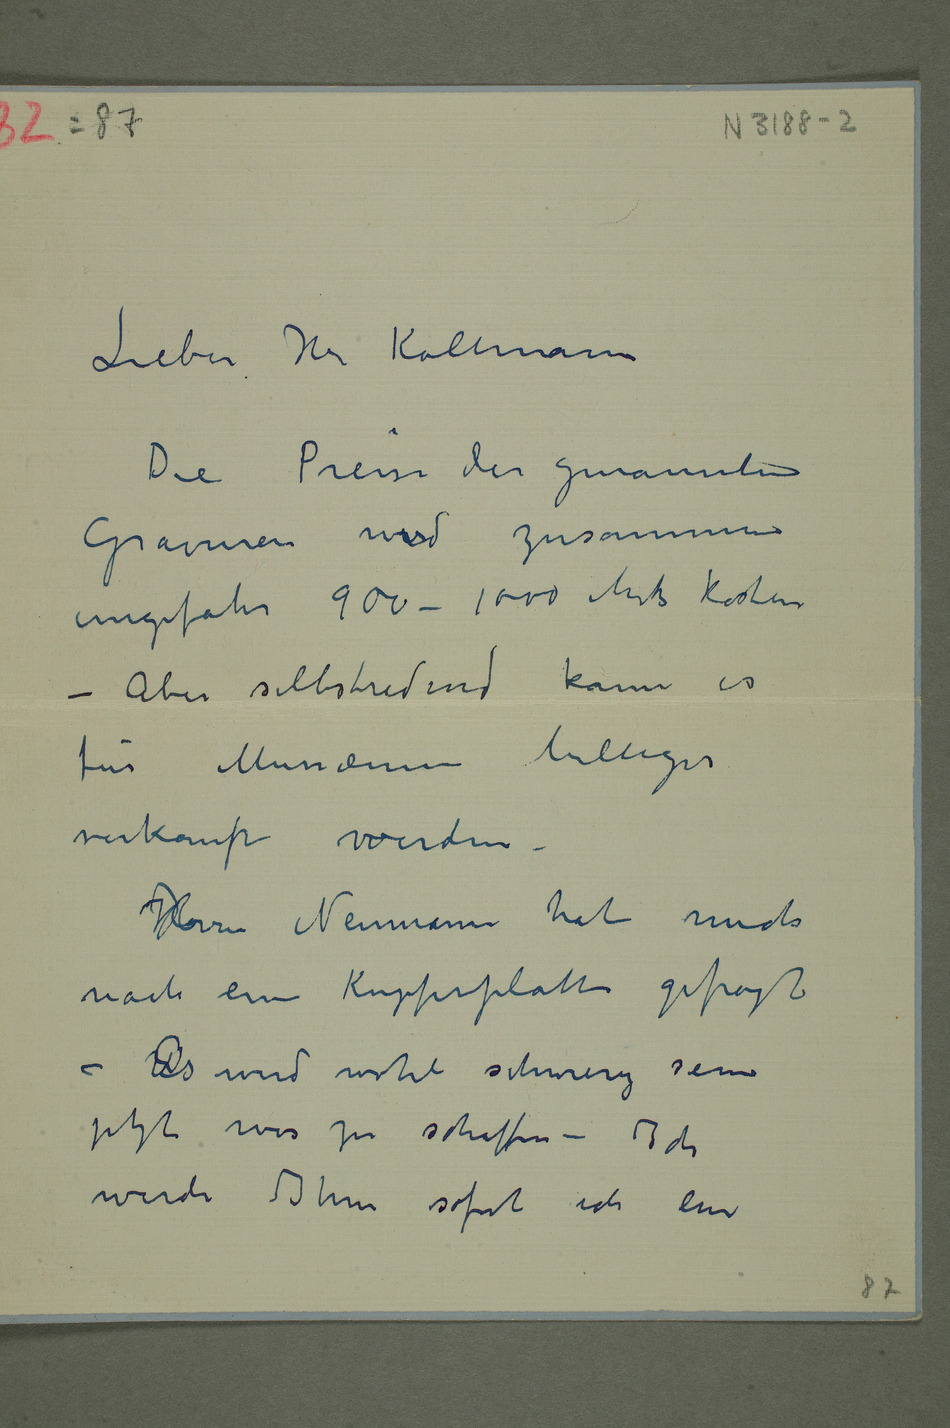 82 = 87
N 3188-2
Lieber Herr Kollmann
Die Preise der genannten
Gravuren wird zusammen
ungefähr 900 – 1000 Mark kosten
– Aber selbstredend kann es
für Musæum billiger
verkauft werden –
Herrn Neumann hat mich
nach eine Kupferplatte gefragt
– Es wird wohl schwierig sein
jetzt was zu schaffen – Ich
werde Ihnen sofort ich eine
87